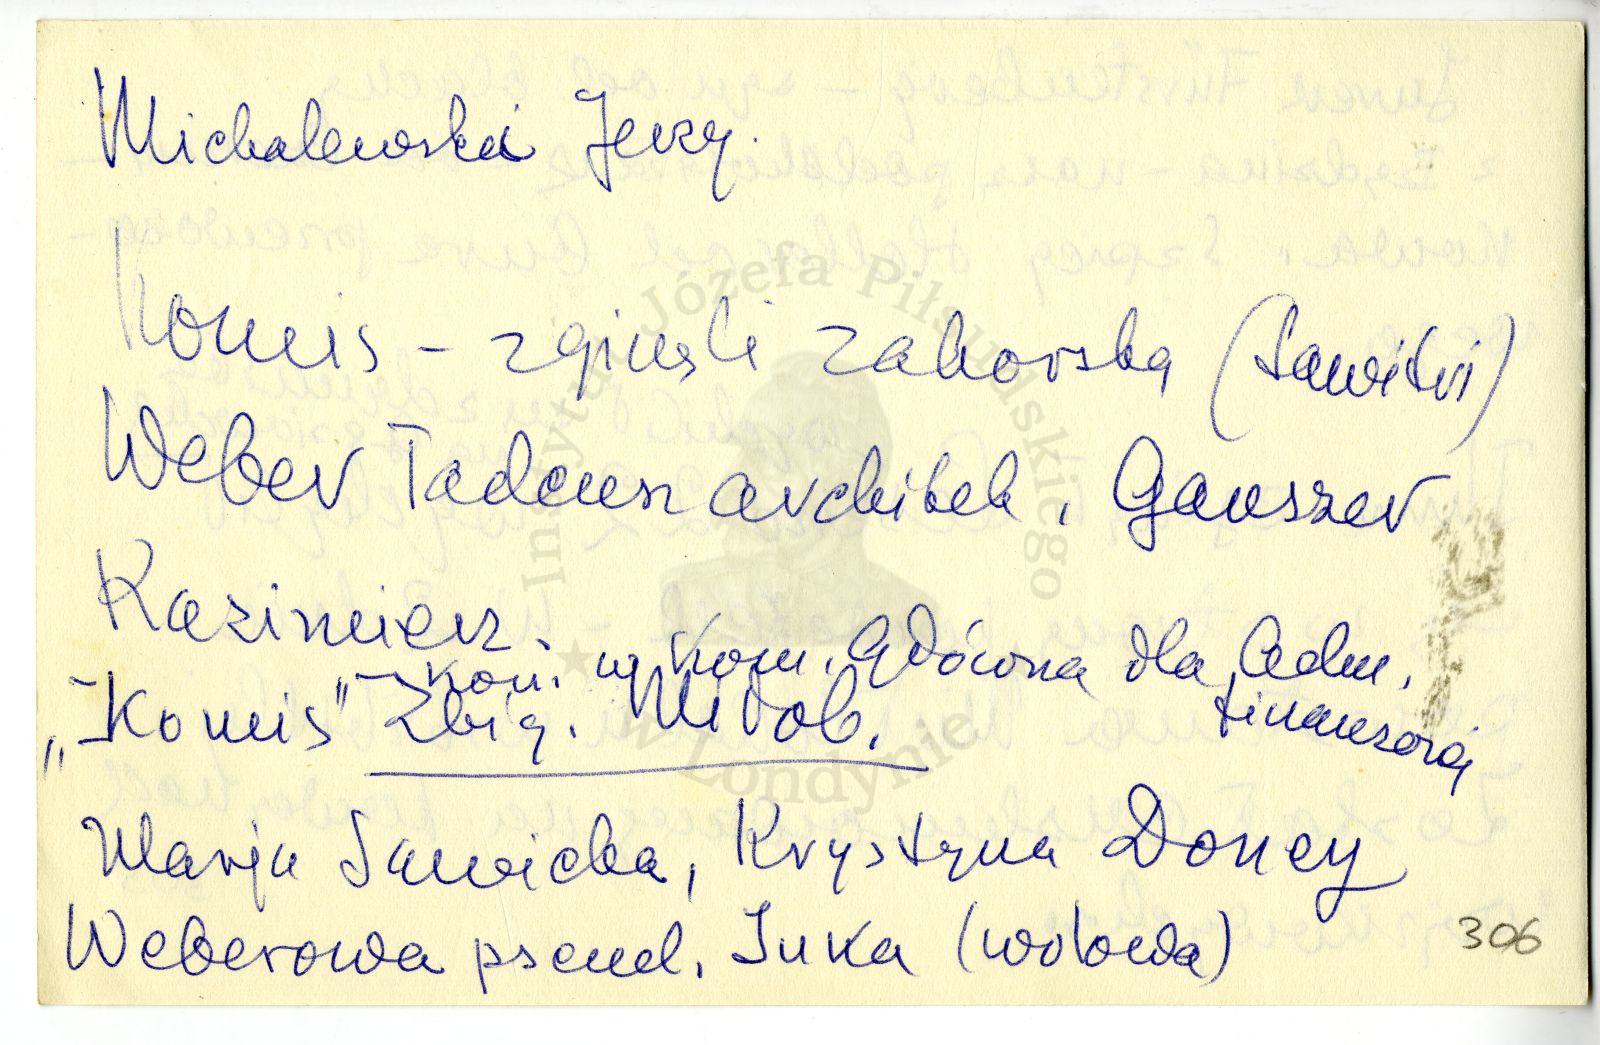 Michalewski Jerzy.
Komis – zginęli Zaborska (Sawitri)
Weber Tadeusz architekt, Gauszer
Kazimierz.
– Kom. w Kom. Główna dla Adm.
„Komis" Zbig. Mdob. finansową
Marja Sawicka, Krystyna Doncy
Weberowa pseud. Inka (wdowa)
306
Instytut Józefa Piłsudskiego
w Londynie